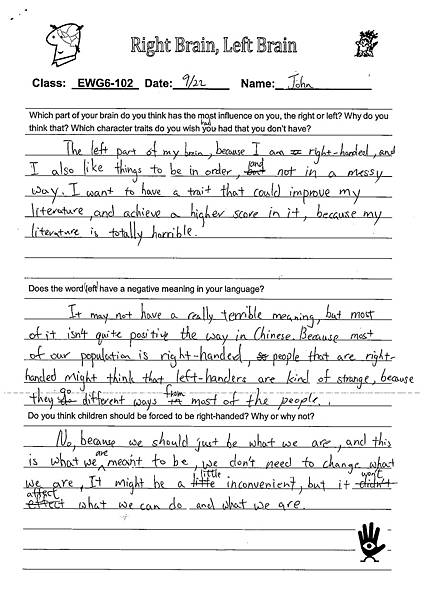 Right Brain, Left Brain
Class: EWG6-102 Date: 9/22 Name: John
Which part of your brain do you think has the most influence on you, the right or left? Why do you
had
think that? Which character traits do you wish you had that you don't have?
The left part of my brain, because I am right-handed, and
I also like things to be in order, and not in a messy
way. I want to have a trait that could improve my
literature, and achieve a higher score in it, because my
literature is totally horrible.
Does the word left have a negative meaning in your language?
It may not have a really terrible meaning, but most
of it isn't quite positive the way in Chinese. Because most
of our population is right-handed, so people that are right-
handed might think that left-handers are kind of strange, because
they go different ways from most of the people.
Do you think children should be forced to be right-handed? Why or why not?
No, because we should just be what we are, and this
is what we are meant to be, we don't need to change what
we are, It might be a little inconvenient, but it won't didn't
affect effect what we can do and what we are.